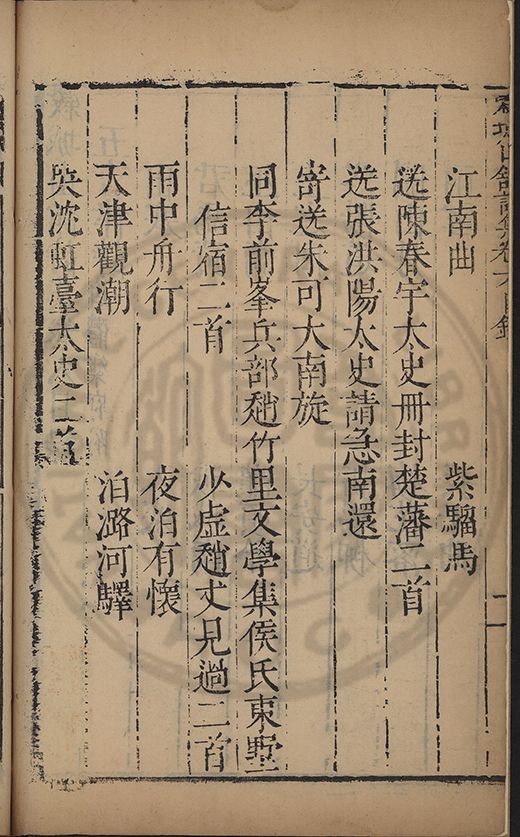 江南曲　紫騮馬
送陳春宇太史冊封楚藩二首
送張洪陽太史請急南還
寄送朱可大南旋
同李前峯兵部趙竹里文學集侯氏東墅
信宿二首　少虛趙丈見過二首
雨中舟行　夜泊有懷
天津觀潮　泊潞河驛
吳沈虹臺太史二首
二